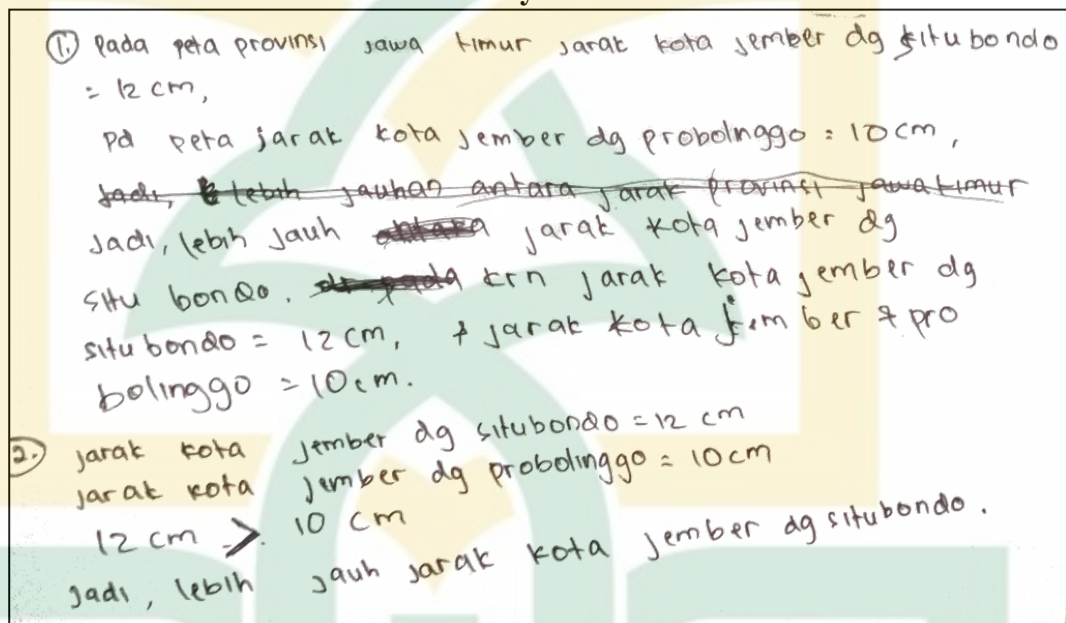 1. Pada peta provinsi Jawa timur jarak kota jember dg situbondo
= 12 cm,
Pd peta jarak kota jember dg probolnggo = 10 cm,
Jadi, lebih jauhan antara jarak provinsi jawa timur
Jadi, lebih jauh antara jarak kota jember dg
situ bondo. dr pada krn jarak kota jember dg
situ bondo = 12 cm, & jarak kota jem ber & pro
bolinggo = 10 cm.
2. jarak kota jember dg situbondo = 12 cm
jarak kota jember dg probolinggo = 10 cm
12 cm > 10 cm
Jadi, lebih jauh jarak kota jember dg situbondo.